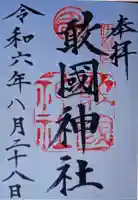 奉拝
敢國神社
令和六年八月二十八日